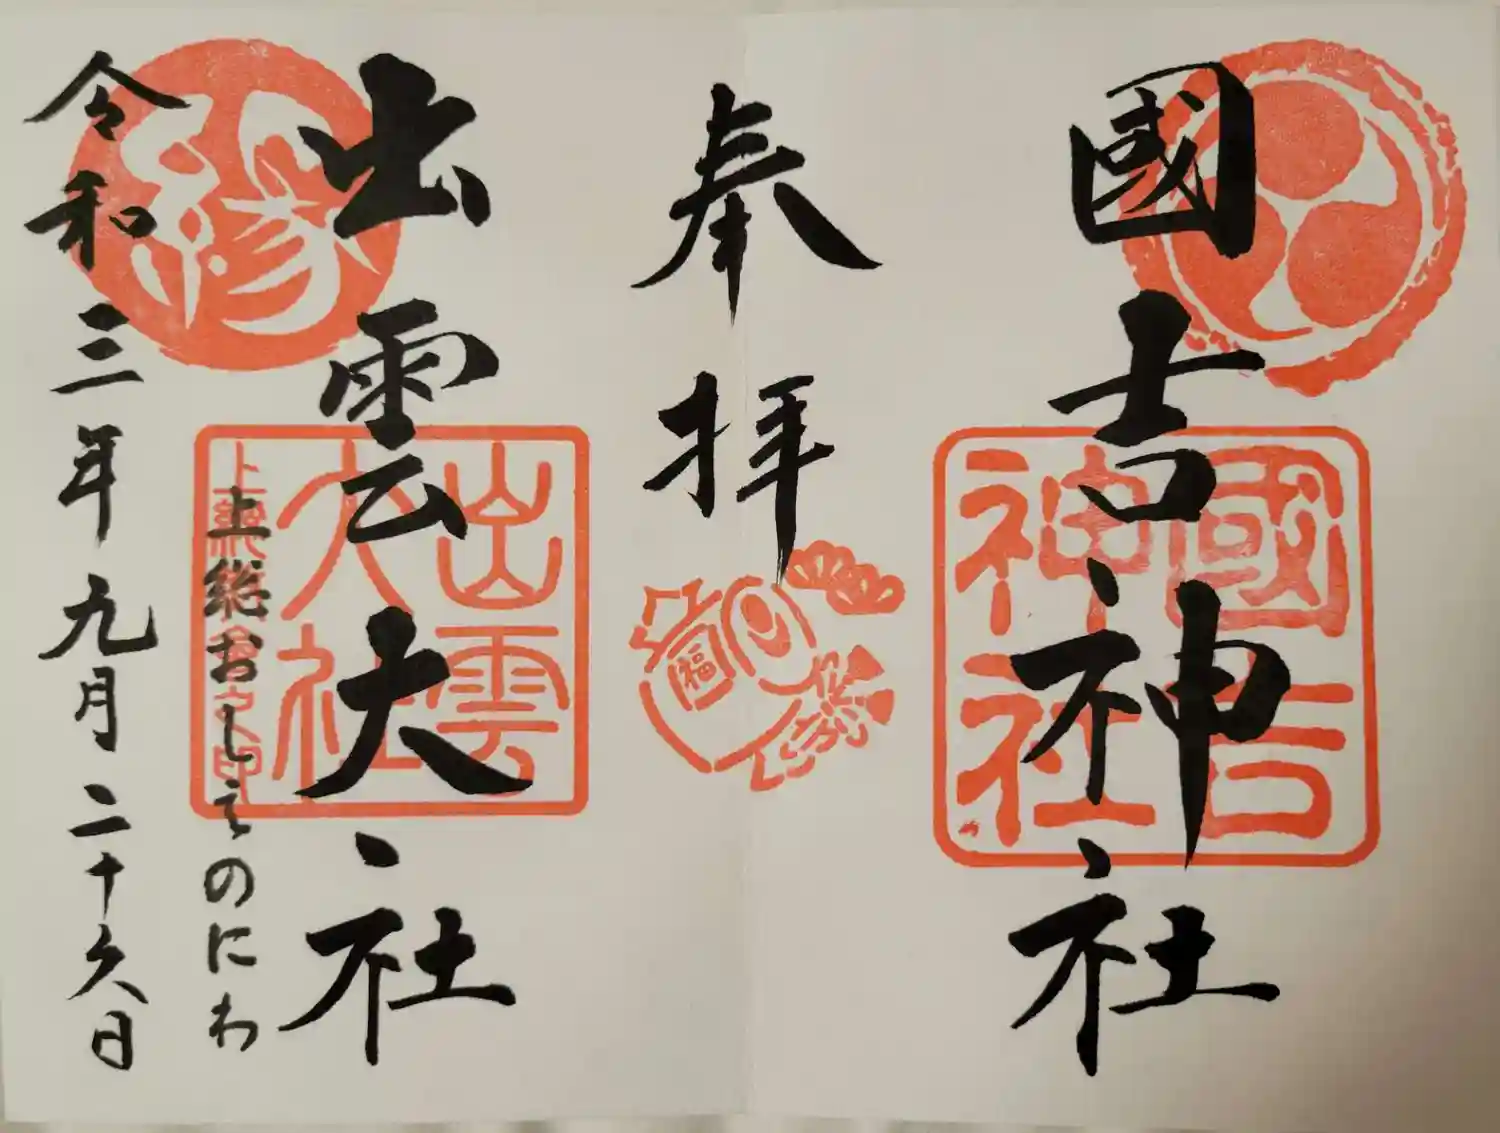 國吉神社
國吉
神社
奉拝
福
出雲大社
縁
出雲
大社
上総おしえのにわ
令和三年九月二十六日